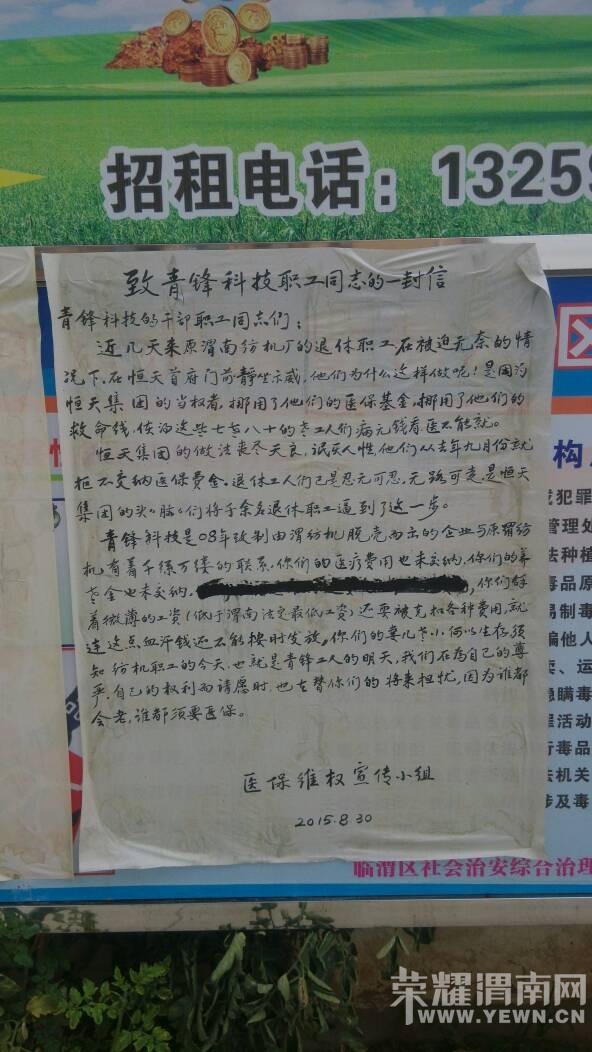 招租电话：13259
致青锋科技职工同志的一封信
青锋科技的干部职工同志们：
近几天来原渭南纺机厂的退休职工在被迫无奈的情
况下,在恒天首府门前静坐示威,他们为什么这样做呢!是因为
恒天集团的当权者,挪用了他们的医保基金,挪用了他们的
救命线,使得这些七老八十的老工人们病无钱看医不能就。
恒天集团的做法丧尽天良,泯灭人性,他们从去年九月份就
拒不交纳医保费金,退休工人们已是忍无可忍,无路可走,是恒天
集团的头"脑"们将千余名退休职工逼到了这一步。
青锋科技是08年改制由渭纺机脱壳而出的企业与原渭纺
机有着千丝万缕的联系,你们的医疗费用也未交纳,你们的养
老金也未交纳,你们
着微薄的工资(低于渭南法定最低工资)还要被克扣各种费用,就
连这点血汗钱还不能按时发放,你们的妻儿老小何以生存,须
知纺机职工的今天,也就是青锋工人的明天,我们在为自己的尊
严,自己的权利而请愿时,也在替你们的将来担忧,因为谁都
会老,谁都须要医保。
医保维权宣传小组
2015.8.30
区
构
犯罪
管理处
法种植
毒品原
易制毒
骗他人
卖、运
隐瞒毒
罪活动
行毒品
法机关
涉及毒
性
临渭区社会治安综合治理
荣耀渭南网
WWW.YEWN.CN